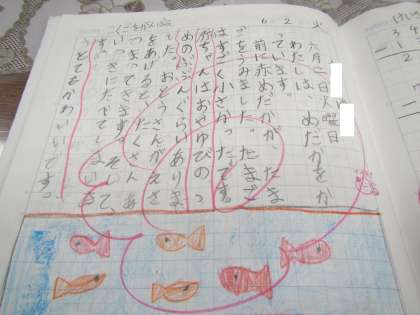 6 2 火
六月二日火曜日
わたしは、めだかをか
っています。
前に赤めだかが、たま
ごをうみました。たまご
はすごく小さかったです。
赤ちゃんはおやゆびのつ
めのはんぶんぐらいありま
した。おとうさんがえさ
をあげると、たくさんあ
つまってきます。そして、
いっきにたべてしまいま
す。
とてもかわいいです。